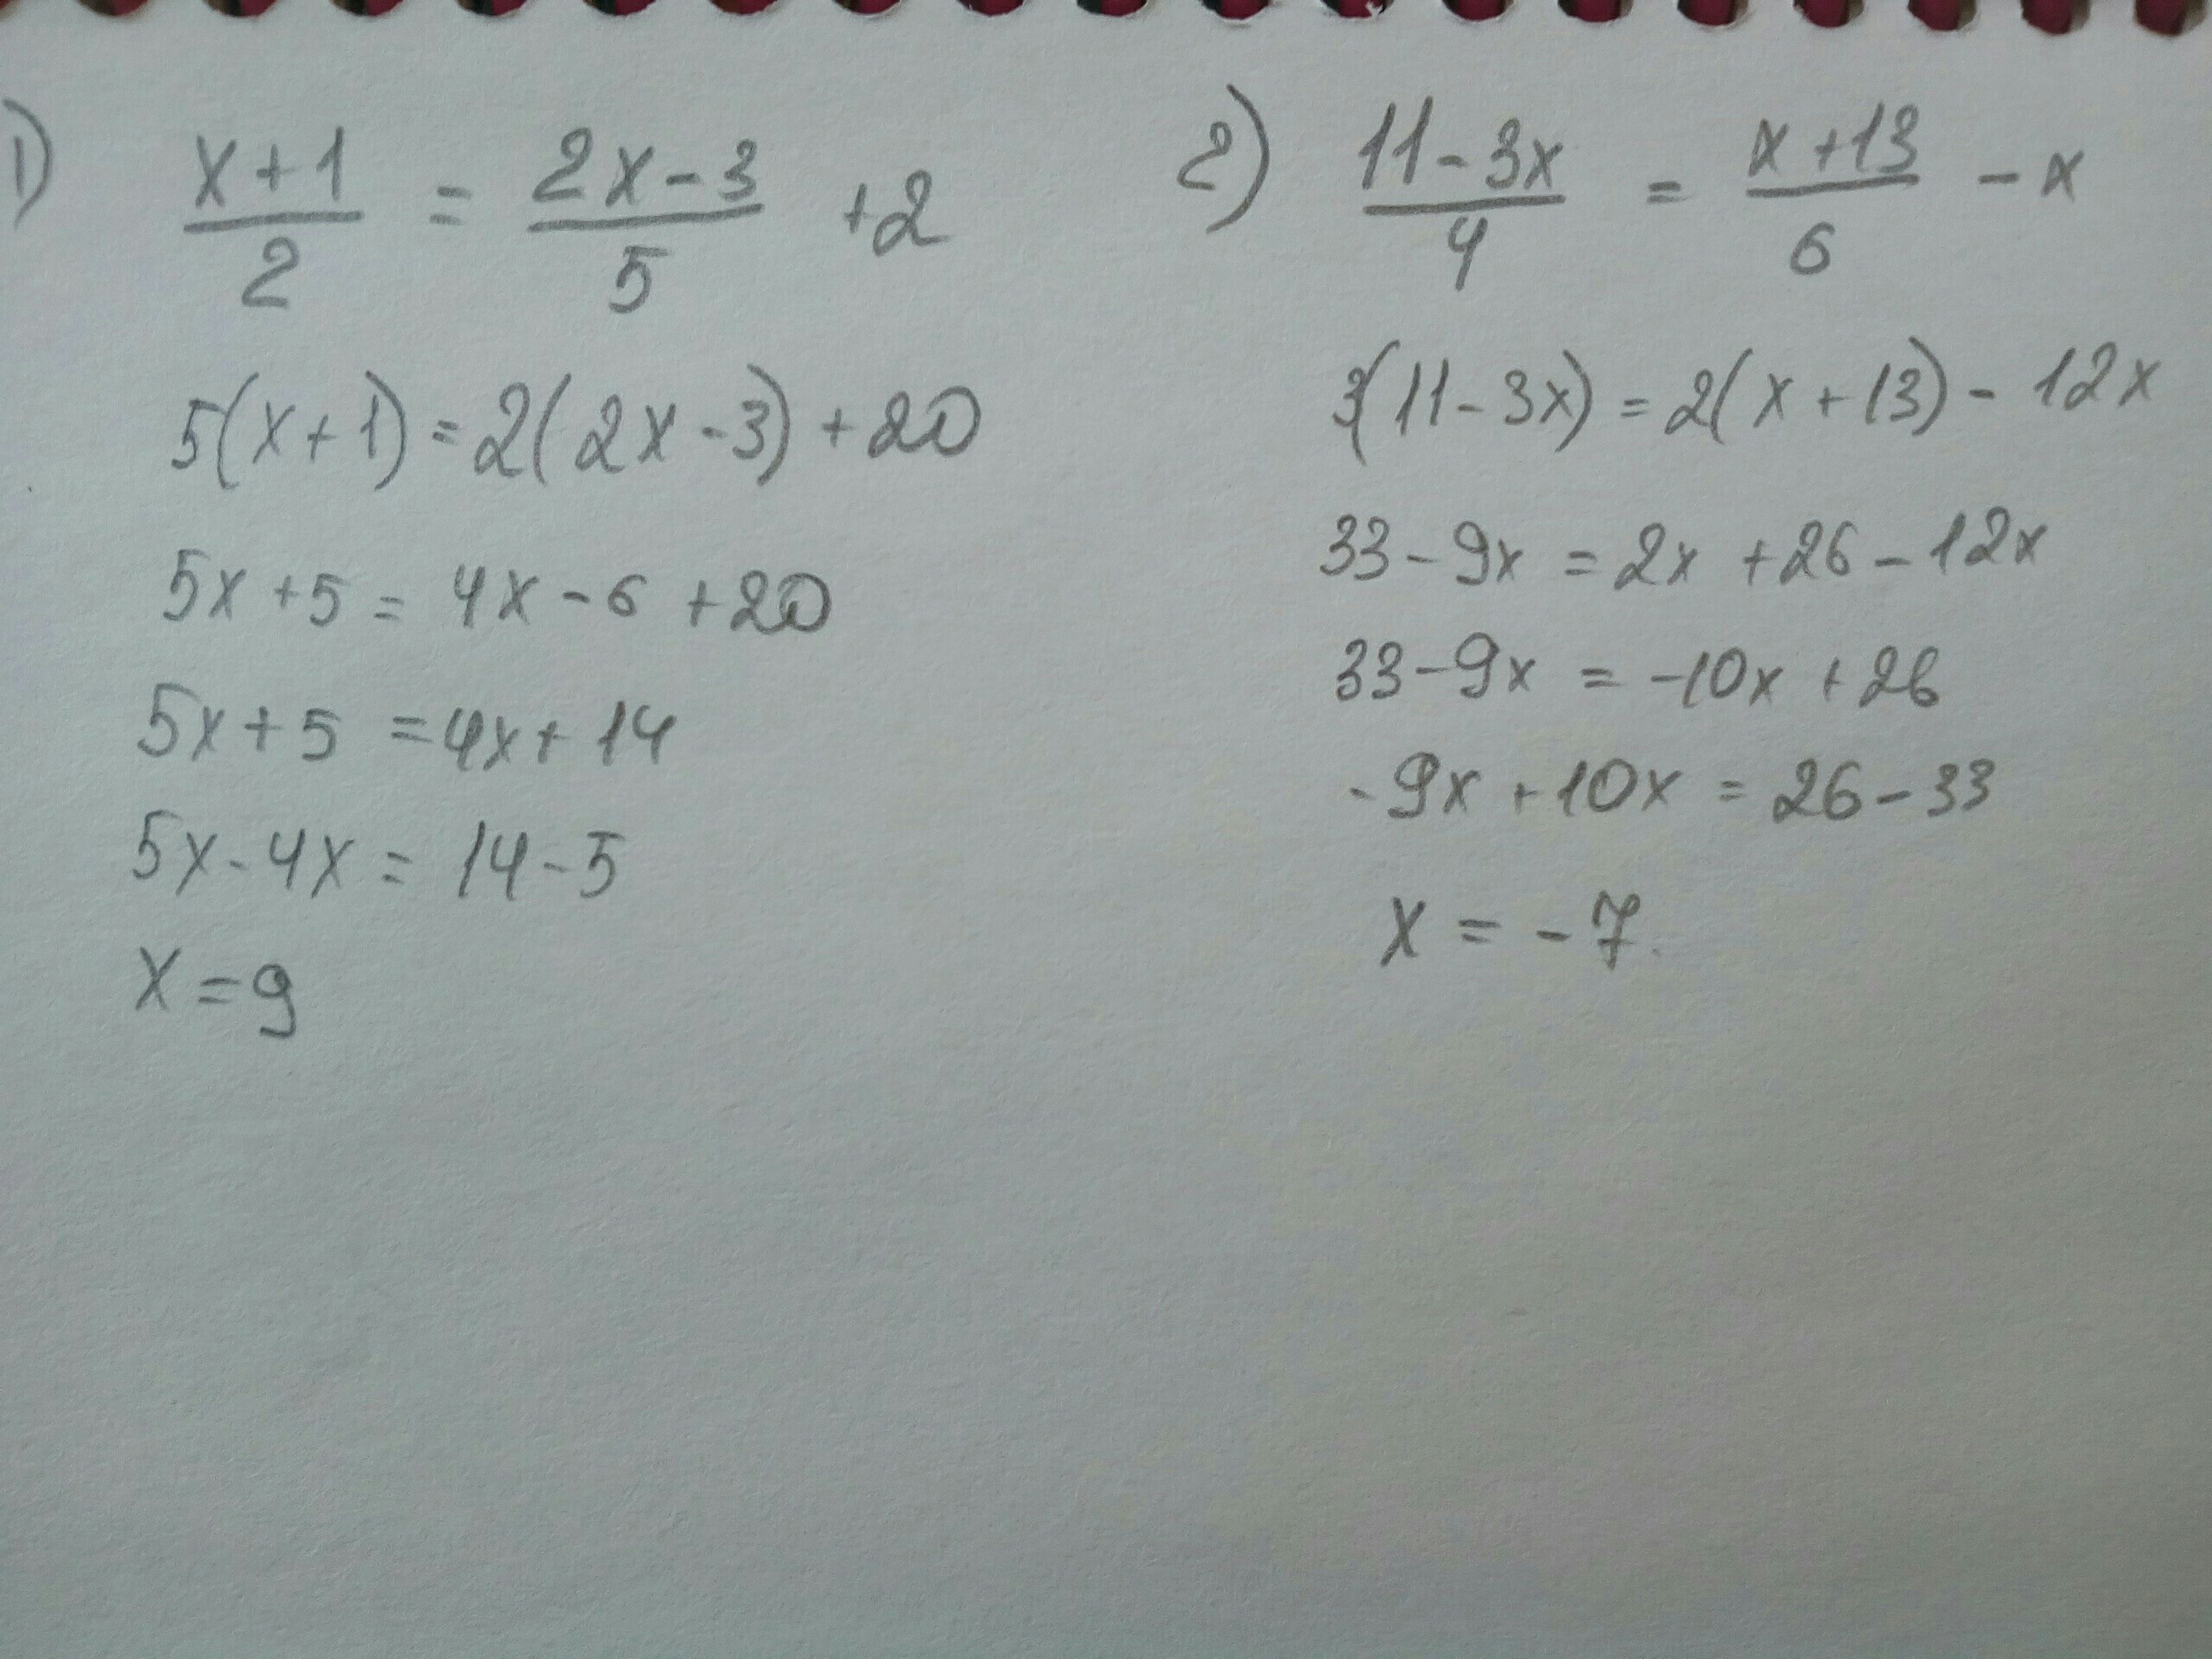 1) (x+1)/2 = (2x-3)/5 +2
5(x+1)=2(2x-3)+20
5x+5=4x-6+20
5x+5=4x+14
5x-4x=14-5
x=9
2) (11-3x)/4 = (x+13)/6 -x
3(11-3x)=2(x+13)-12x
33-9x=2x+26-12x
33-9x=-10x+26
-9x+10x=26-33
x=-7.